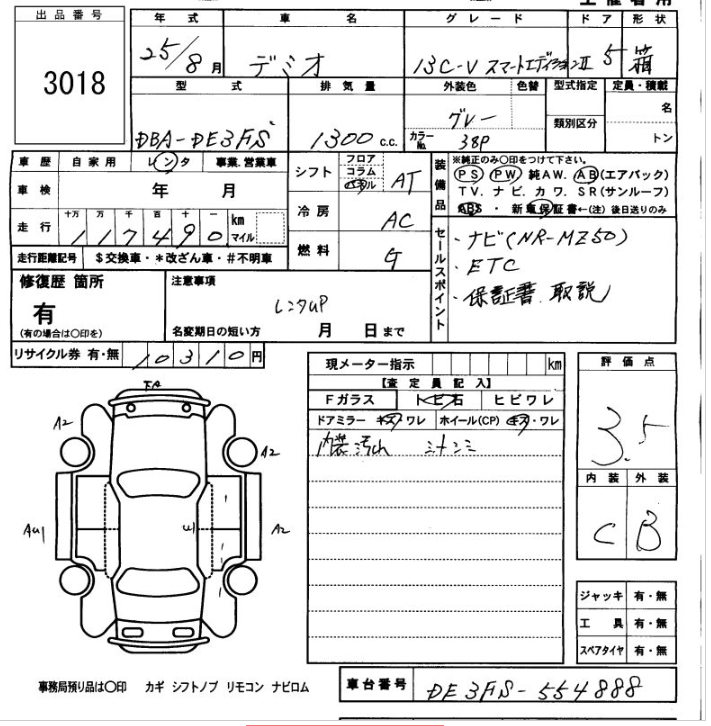 出品番号
3018
年式 車名 グレード ドア 形状
25/8月 デミオ 13C-V スマートエディションII 5 箱
型式 排気量 外装色 色替 型式指定 定員・積載
DBA-DE3FS 1300 c.c. グレー カラーNo. 38P 類別区分 名 トン
車歴 自家用 レンタ 事業.営業車
車検 年 月
走行 十万 万 千 百 十 一 km マイル
117490
走行距離記号 $交換車・*改ざん車・#不明車
シフト フロア コラム AT
冷房 AC
燃料 G
装備品 ※純正のみ〇印をつけて下さい。
PS PW 純AW. AB(エアバック)
TV. ナビ. カワ. SR(サンルーフ)
ABS ・ 新車保証書←(注) 後日送りのみ
セールスポイント
・ナビ(NR-MZ50)
・ETC
・保証書.取説
修復歴 箇所
有
(有の場合は〇印を)
注意事項
レンタUP
名変期日の短い方 月 日まで
リサイクル券 有・無 10310円
現メーター指示 km
【査定員記入】
Fガラス トビ石 ヒビワレ
ドアミラー キズ・ワレ ホイール(CP) キズ・ワレ
内装汚れ
評価点
3.5
内装 外装
C B
A2
A2
AU1
A2
ジャッキ 有・無
工具 有・無
スペアタイヤ 有・無
事務局預り品は〇印 カギ シフトノブ リモコン ナビロム
車台番号 DE3FS-554888